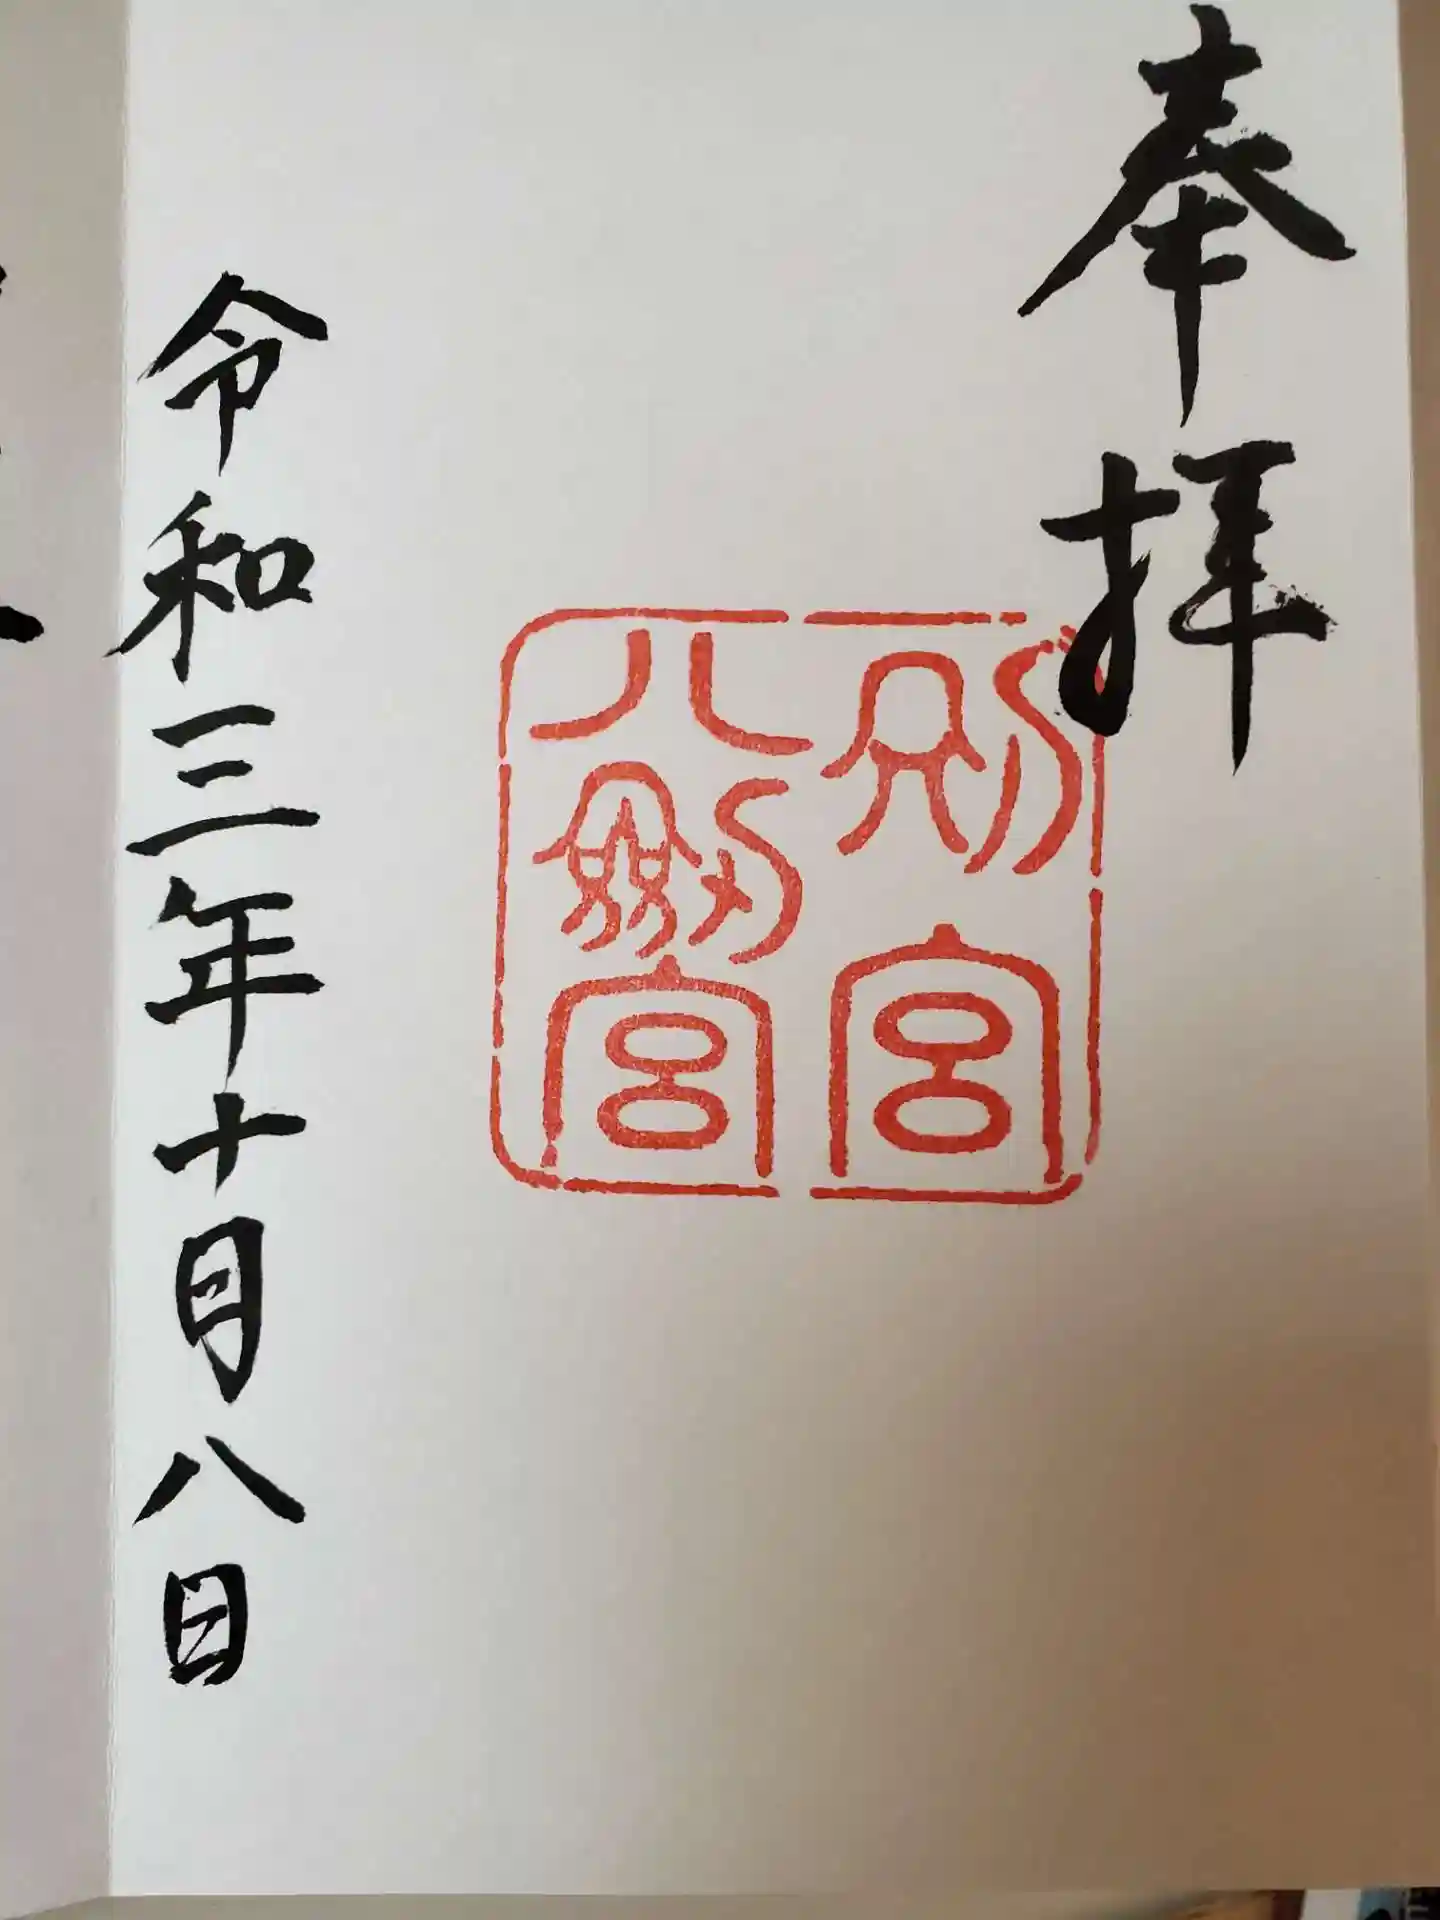 奉拝
別宮
八劔宮
令和三年十月八日